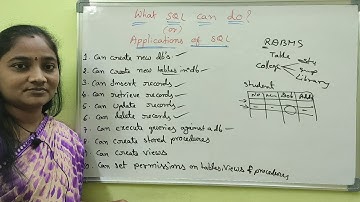 What SQL can do?
(or)
Applications of SQL
1. Can create new db's
2. Can create new tables in db
3. Can Insert records
4. Can retrieve records
5. Can update records
6. Can delete records
7. Can execute queries against a db
8. Can Create stored procedures
9. Can Create views
10. Can set permissions on tables, views & procedures
RDBMS
Table
College
Library
Student
No